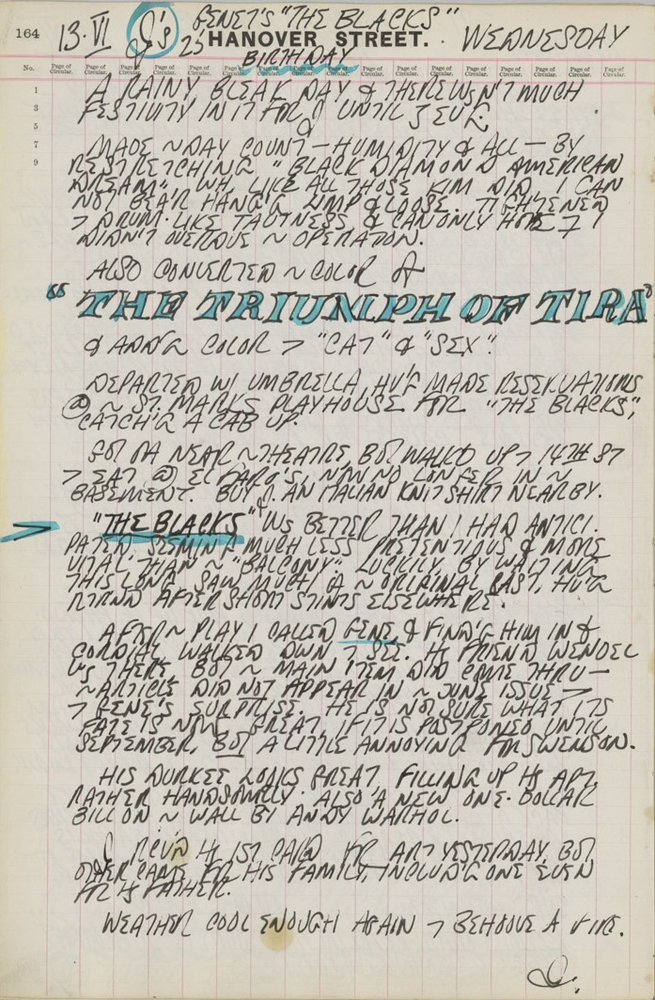 164 13·VI J's GENET'S "THE BLACKS"
25 HANOVER STREET. WEDNESDAY
BIRTHDAY
No. Page of Circular. Page of Circular. Page of Circular. Page of Circular. Page of Circular. Page of Circular. Page of Circular. Page of Circular. Page of Circular. Page of Circular. Page of Circular. Page of Circular. Page of Circular. Page of Circular.
1 A RAINY, BLEAK DAY & THERE WSN'T MUCH
3 FESTIVITY IN IT FOR J UNTIL 3 EVE.
5
7 MADE ~ DAY COUNT — HUMIDITY & ALL — BY
9 RESTRETCHING "BLACK DIAMOND AMERICAN
DREAM", WH, LIKE ALL THOSE KIM DID, I CAN
NOT BEAR HANG'G LIMP & LOOSE. TIGHTENED
> DRUM-LIKE TAUTNESS & CAN ONLY HOPE I
DIDN'T OVERDUE ~ OPERATION.
ALSO CONVERTED ~ COLOR OF
"THE TRIUMPH OF TIRA"
& ADD'G COLOR > "CAT" & "SEX".
DEPARTED W/ UMBRELLA, HV'G MADE RESERVATIONS
@ ~ ST. MARKS PLAYHOUSE FOR "THE BLACKS",
CATCH'G A CAB UP.
GOT OFF NEAR ~ THEATRE, BUT WALKD UP > 14TH ST
> EAT @ EL FARO'S, NOW NO LONGER IN ~
BASEMENT. BUY'G AN ITALIAN KNIT SHIRT NEARBY.
"THE BLACKS" WS BETTER THAN I HAD ANTICI-
PATED. SEEMING MUCH LESS PRETENTIOUS & MORE
VITAL THAN ~ "BALCONY". LUCKILY, BY WAITING
THIS LONG, SAW MUCH OF ~ ORIGINAL CAST, HV'G
RTRND AFTER SHORT STINTS ELSEWHERE.
AFTER ~ PLAY I CALLED GENE, & FIND'G HIM IN &
CORDIAL WALKED DWN > SEE. HS FRIEND WENDEL
WS THERE, BUT ~ MAIN ITEM DID COME THRU —
~ ARTICLE DID NOT APPEAR IN ~ JUNE ISSUE —
> GENE'S SURPRISE. HE IS NOT SURE WHAT ITS
FATE IS NOW. GREAT, IF IT IS POSTPONED UNTIL
SEPTEMBER, BUT A LITTLE ANNOYING FOR SWENSON.
HIS DURKEE LOOKS GREAT, FILLING UP HS APT.
RATHER HANDSOMELY. ALSO A NEW ONE-DOLLAR
BILL ON ~ WALL BY ANDY WARHOL.
J RCVD HS 1ST CARD FR ART YESTERDAY, BUT
OTHER CAME FR HIS FAMILY, INCLUD'G ONE EVEN
FR HS FATHER.
WEATHER COOL ENOUGH AGAIN > BEHOOVE A FIRE.